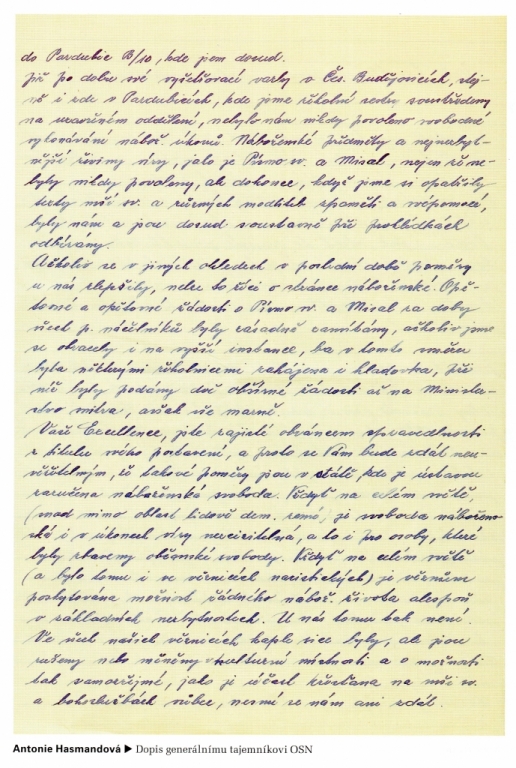 do Pardubic B/10, kde jsem dosud.
Již po dobu své vyšetřovací vazby v Čes. Budějovicích, stej-
ně i zde v Pardubicích, kde jsme řeholní sestry soustředěny
na uzavřeném oddělení, nebylo nám nikdy povoleno svobodné
vykonávání nábož. úkonů. Náboženské předměty a nejnezbyt-
nější řeviny víry, jako je Písmo sv. a Misál, nejen že ne-
byly nikdy povoleny, ale dokonce, když jsme si opatřily
texty mše sv. a různých modliteb zpaměti a svépomocí,
byly nám a jsou dosud soustavně při prohlídkách
odbírány.
Ačkoliv se v jiných ohledech v poslední době poměry
u nás zlepšily, nelze to říci o stránce náboženské. Opě-
tovné a opětovné žádosti o Písmo sv. a Misál za doby
všech p. náčelníků byly zásadně zamítány, ačkoliv jsme
se obracely i na vyšší instance, ba v tomto směru
byla některými řeholnicemi zahájena i hladovka, při
níž byly podány dvě obšírné žádosti až na Minister-
stvo vnitra, avšak vše marně.
Vaše Excellence, jste zajisté obráncem spravedlnosti
z titulu svého postavení, a proto se Vám bude zdát neu-
věřitelným, že takové poměry jsou v státě, kde je ústavou
zaručena náboženská svoboda. Vždyť na celém světě,
(snad mimo oblast lidově dem. zemí) je svoboda nábožen-
ská i v úkonech víry nezcizitelná, a to i pro osoby, které
byly zbaveny občanské svobody. Vždyť na celém světě
(a bylo tomu i ve věznicích nacistických) je vězněným
poskytována možnost řádného nábož. života alespoň
v základních nezbytnostech. U nás tomu tak není.
Ve všech našich věznicích kaple sice byly, ale jsou
zrušeny nebo změněny v kulturní místnosti a o možnosti
tak samozřejmé, jako je účast křesťana na mši sv.
a bohoslužbách vůbec, nesmí se nám ani zdát.
Antonie Hasmandová ▶ Dopis generálnímu tajemníkovi OSN